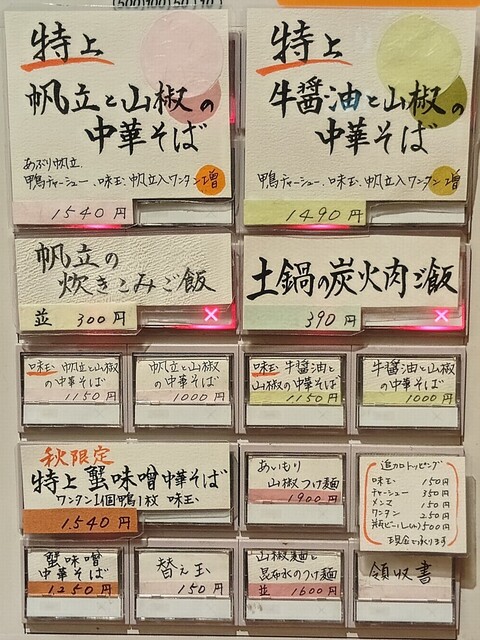 特上
帆立と山椒の
中華そば
あぶり帆立、
鴨チャーシュー、味玉、帆立入ワンタン増
1540円
特上
牛醤油と山椒の
中華そば
鴨チャーシュー、味玉、帆立入ワンタン増
1490円
帆立の
炊きこみご飯
並 300円
土鍋の炭火肉ご飯
390円
味玉 帆立と山椒
の中華そば
1150円
帆立と山椒
の中華そば
1000円
味玉 牛醤油と
山椒の中華そば
1150円
牛醤油と山椒
の中華そば
1000円
秋限定
特上 蟹味噌中華そば
ワンタン1個 鴨1枚 味玉
1540円
あいもり
山椒つけ麺
1900円
追加トッピング
味玉 150円
チャーシュー 350円
メンマ 150円
ワンタン 250円
瓶ビール(小)500円
現金で承ります
蟹味噌
中華そば
1250円
替え玉
150円
山椒麺と
昆布水のつけ麺
並 1600円
領収書